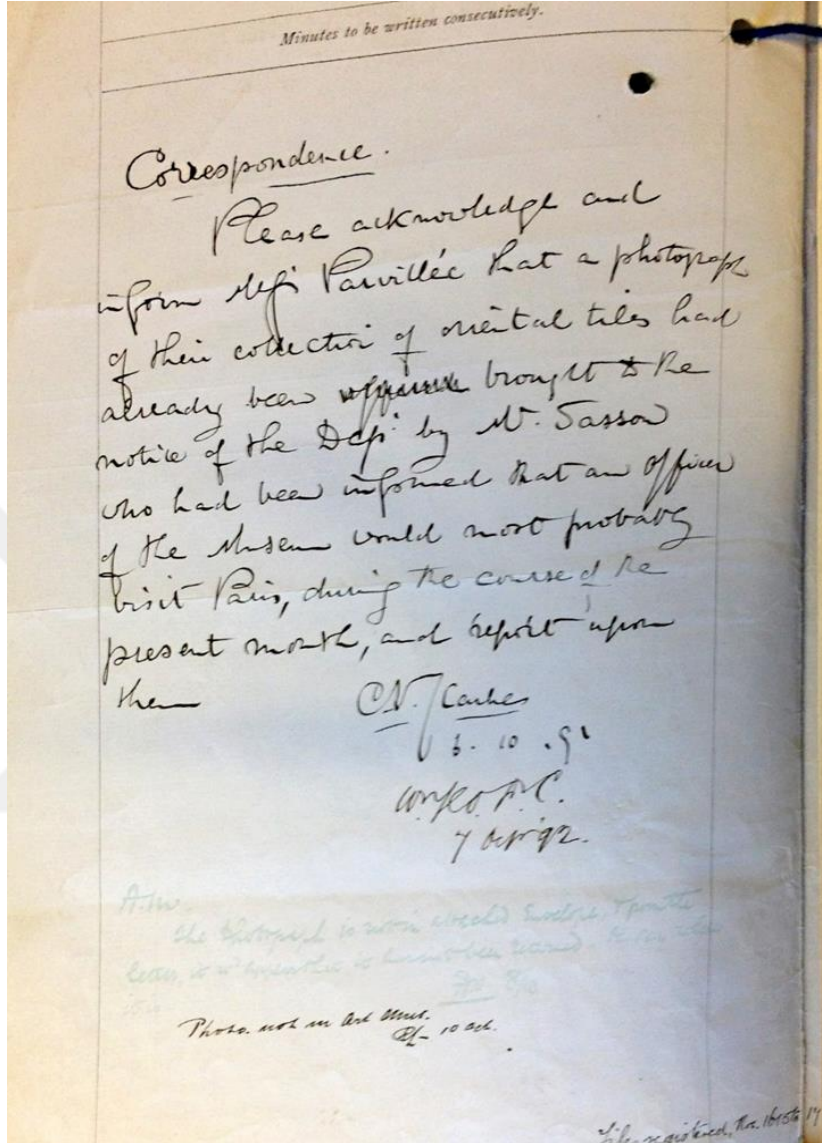 Minutes to be written consecutively.
Correspondence.
Please acknowledge and
inform Mess Parvillée that a photograph
of their collection of oriental tiles had
already been brought to the
notice of the Dept by Mr. Sasson
who had been informed that an Officer
of the Museum would most probably
visit Paris, during the course of the
present month, and report upon
them
6. 10. 9
7 92.
A.M.
The Photograph is not in
letter, it
Photo. not in Art Mus.
10 oct.
registered, Nos.